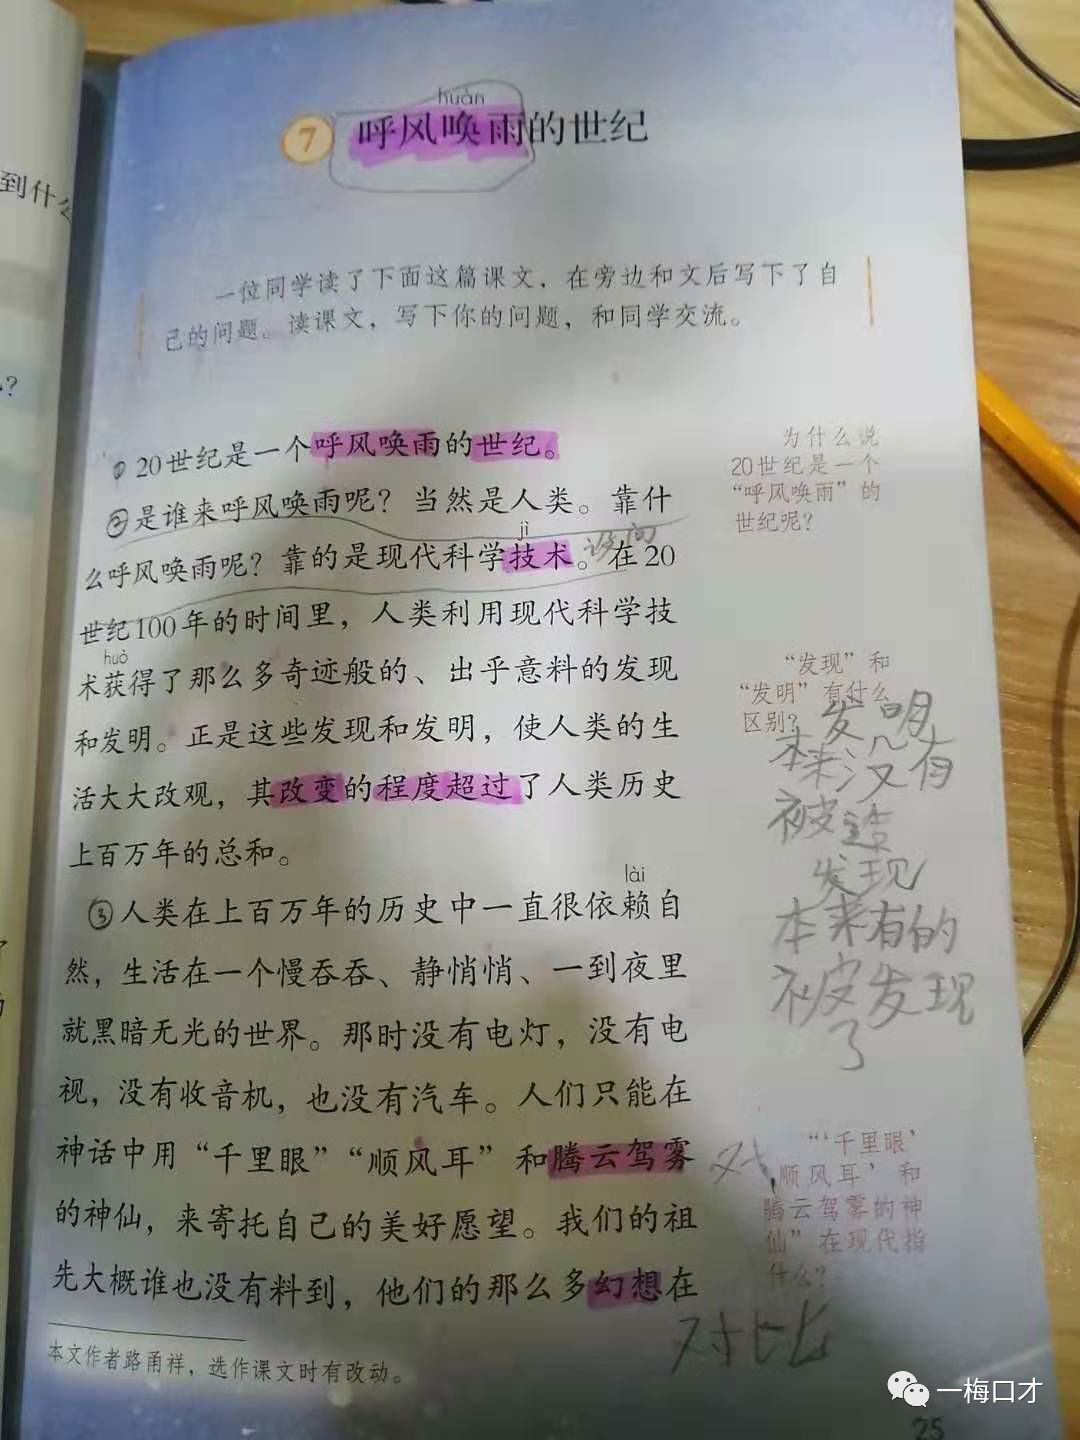 到什么
huàn
7 呼风唤雨的世纪
一位同学读了下面这篇课文，在旁边和文后写下了自
己的问题。读课文，写下你的问题，和同学交流。
① 20世纪是一个呼风唤雨的世纪。
②是谁来呼风唤雨呢？当然是人类。靠什
jì
么呼风唤雨呢？靠的是现代科学技术。设问在20
世纪100年的时间里，人类利用现代科学技
huò
术获得了那么多奇迹般的、出乎意料的发现
和发明。正是这些发现和发明，使人类的生
活大大改观，其改变的程度超过了人类历史
上百万年的总和。
lài
③人类在上百万年的历史中一直很依赖自
然，生活在一个慢吞吞、静悄悄、一到夜里
就黑暗无光的世界。那时没有电灯，没有电
视，没有收音机，也没有汽车。人们只能在
神话中用“千里眼”“顺风耳”和腾云驾雾
的神仙，来寄托自己的美好愿望。我们的祖
先大概谁也没有料到，他们的那么多幻想在
本文作者路甬祥，选作课文时有改动。
为什么说
20世纪是一个
“呼风唤雨”的
世纪呢？
“发现”和
“发明”有什么
区别？
发明
本来没有
被造
发现
本来有的
被发现
了
对
“‘千里眼’
‘顺风耳’和
腾云驾雾的神
仙”在现代指
什么？
对比
一梅口才
25